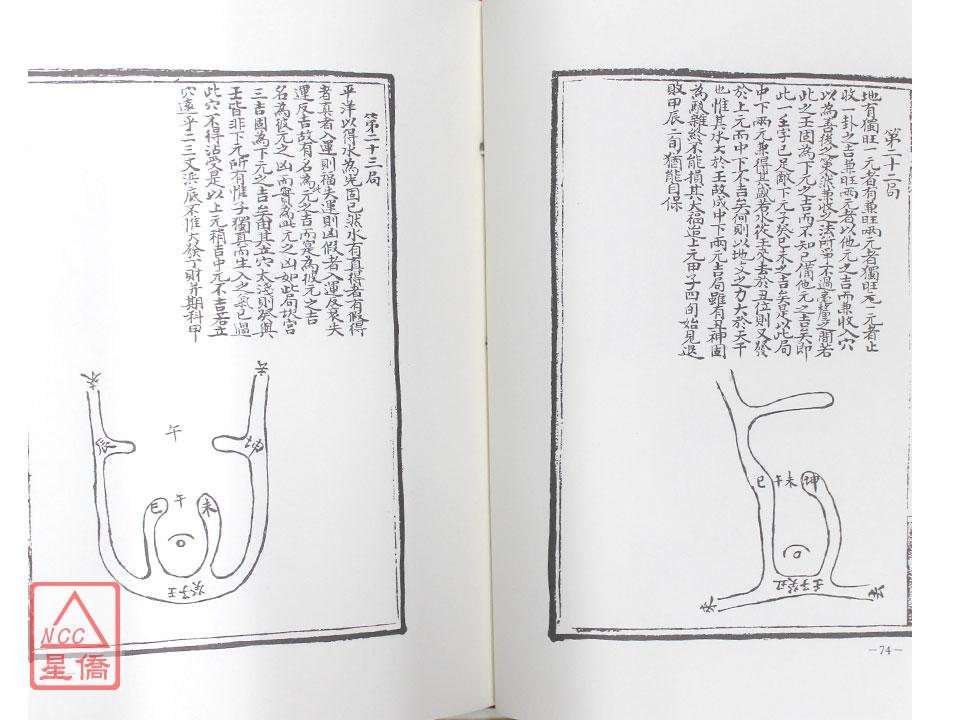 第二十二局
地有獨旺一元者有兼旺兩元者獨旺一元者止
收一卦之吉兼旺兩元者以他元之吉而兼收入穴
以為善後之策然兼收之法所爭不過毫釐之間若
此之壬固為下元之吉而不知已備他元之吉矣即
此一壬字已足敵下元子癸巳未之吉矣是以此局
中下兩元兼得其盛若水從壬來去於丑位則又發
於上元而中下不吉矣何則以地支之力大於天干
也惟其水大於壬故成中下兩元吉局雖有丑神固
為駁雜終不能損其大福迨上元甲子四旬始見退
敗甲辰二旬猶能自保
巳 午 未 坤
壬子癸丑
来
去
—74—
第二十三局
平洋以得水為先固已然水有真得者有假得
者真者入運則福失運則凶假者入運反衰失
運反吉故有名為此元之吉而寔為彼元之吉
名為彼元之凶而實為此元之凶如此局坎宮
三吉固為下元之吉矣苗其立穴太淺則癸與
壬皆非下元所有惟子獨真而生入之氣已過
此穴不得沾受是以上元稍吉中元不吉若立
穴遠乎二三丈浜底不惟大發丁財并期科甲
来
去
午
辰
坤
巳 午 未
癸子壬
NCC
星僑